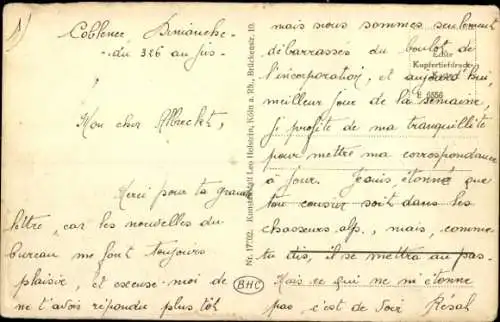 Coblence Dimanche
du 326 au jus.
Mon cher Albrecht,
Merci pour ta grande
lettre, car les nouvelles du
bureau me font toujours
plaisir, et excuse-moi de
ne t'avoir répondu plus tôt
Nr. 17702. Kunstanstalt Leo Holstein, Köln a. Rh., Brückenstr. 10.
BHC
Echte
Kupfertiefdruck-
E 6556
mais nous sommes seulement
débarrassés du boulot de
l'incorporation, et aujourd'hui,
meilleur jour de la semaine,
je profite de ma tranquillité
pour mettre ma correspondance
à jour. Je suis étonné que
ton cousin soit dans les
chasseurs alp., mais, comme
tu dis, il se mettra au pas.
Mais ce qui ne m'étonne
pas, c'est de voir Résal